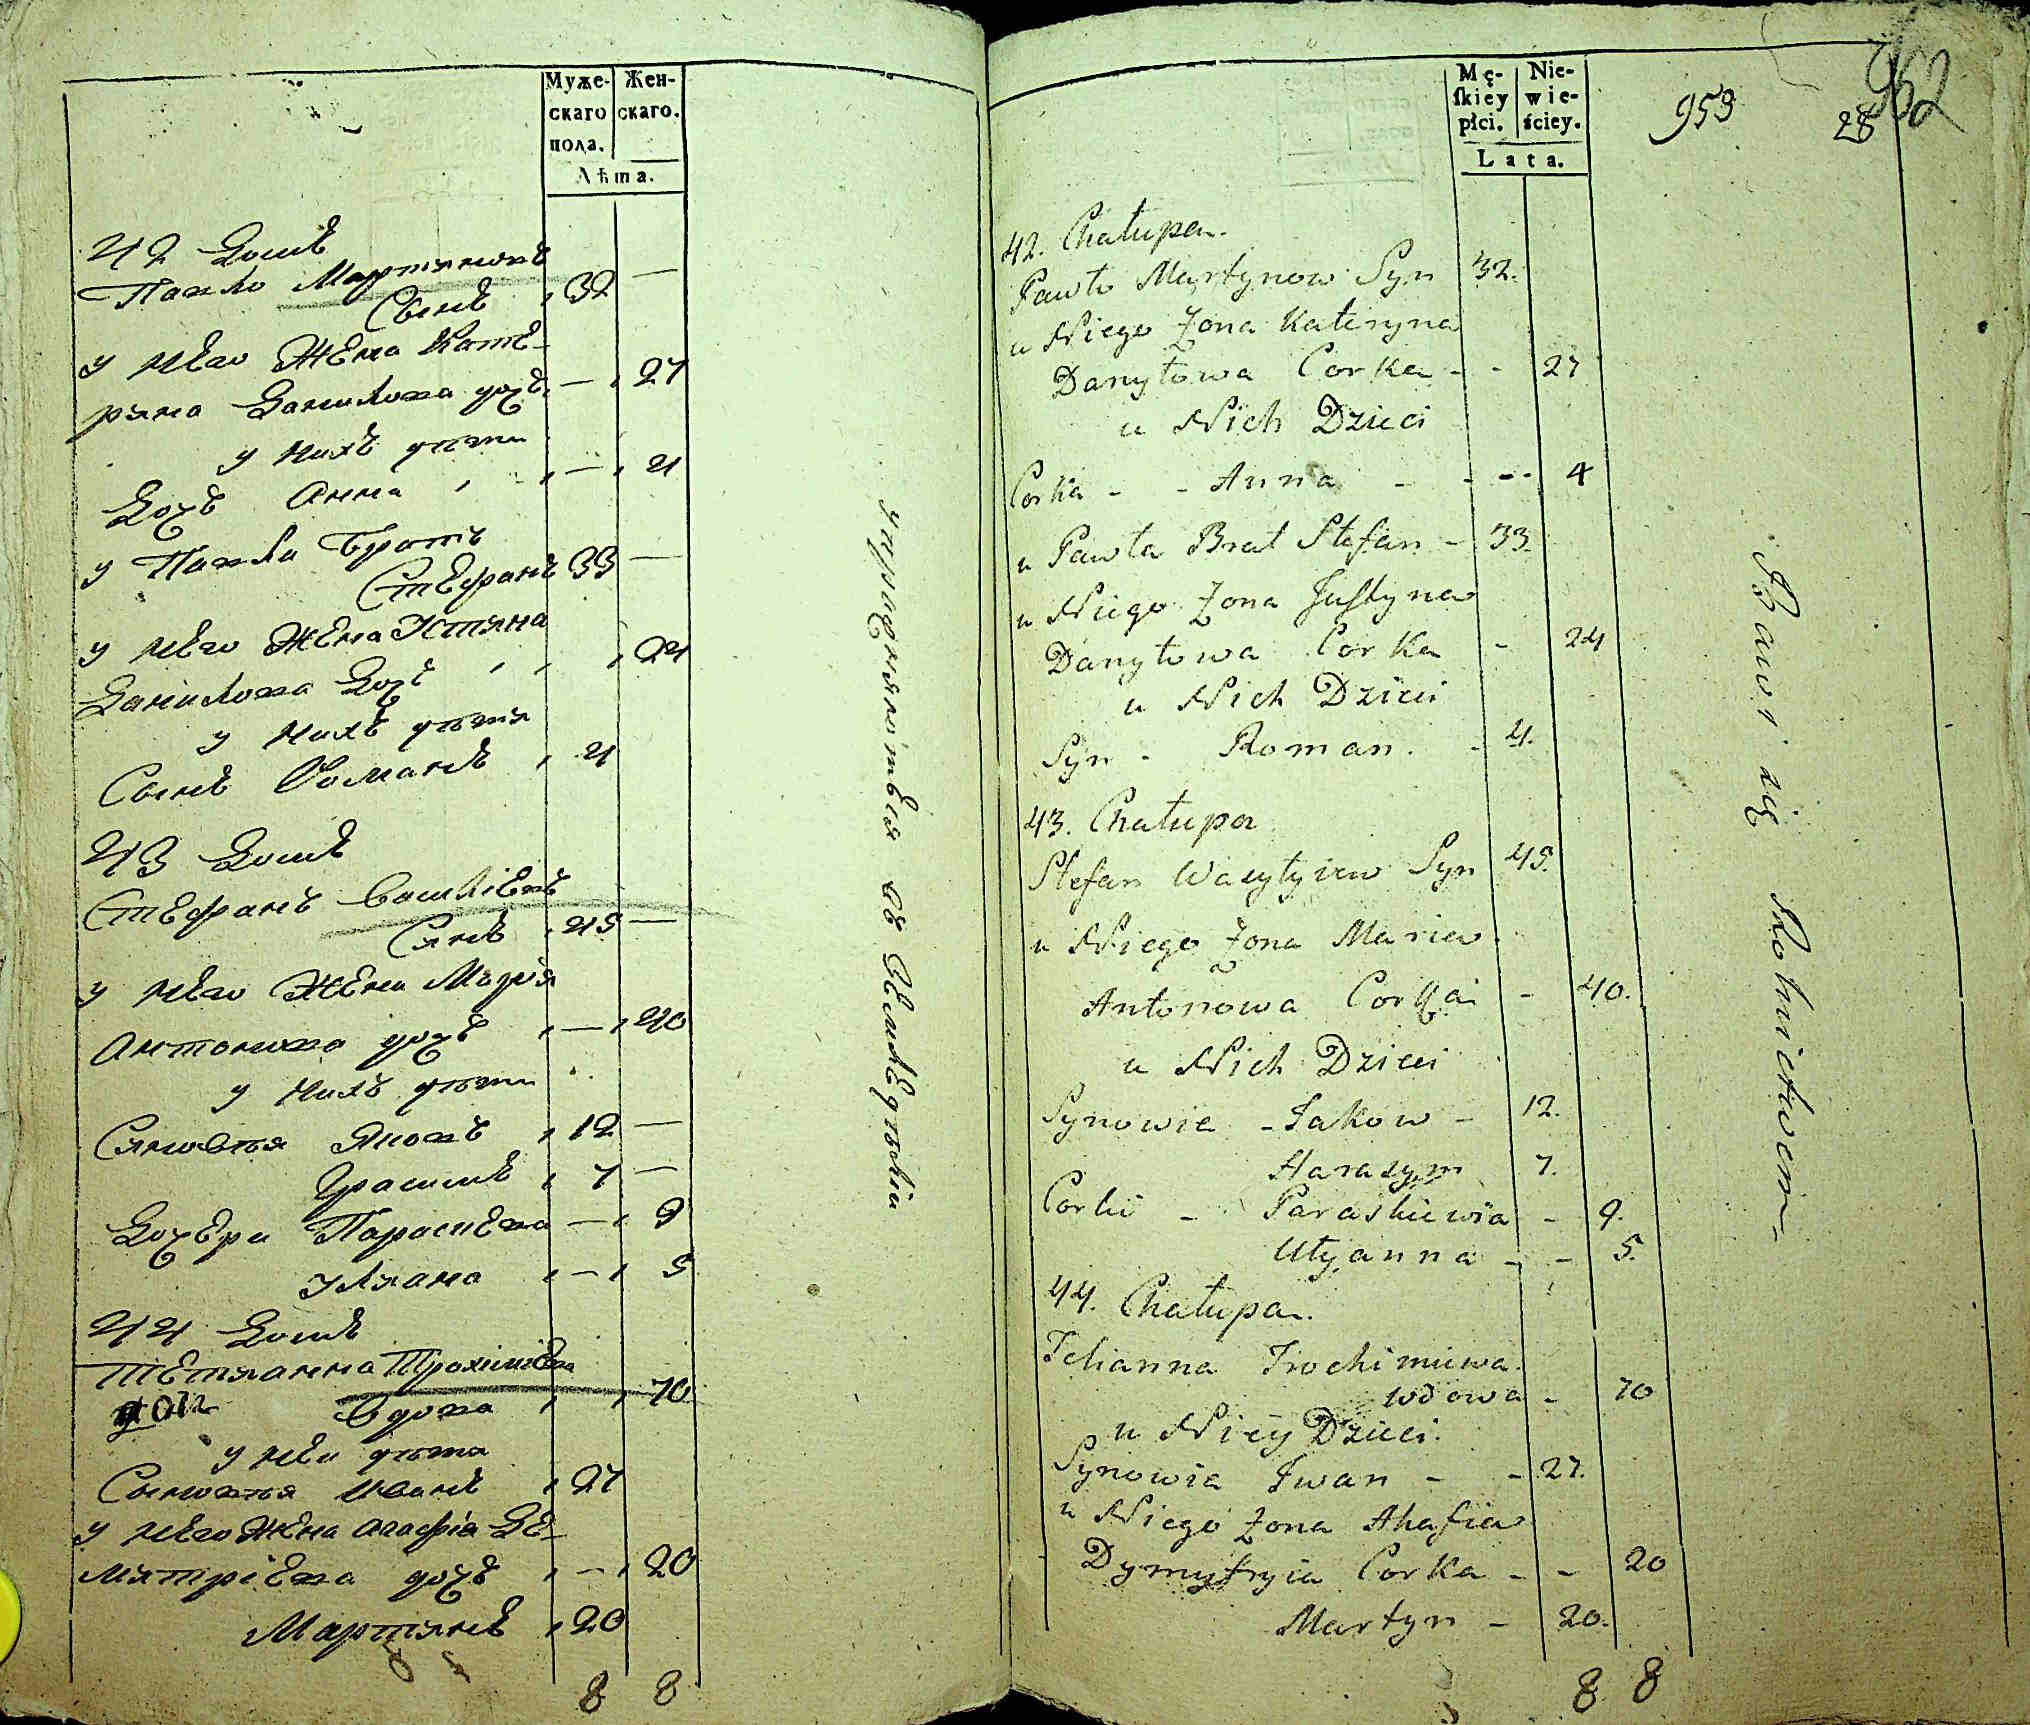 Муже-
скаго
пола.
Жен-
скаго.
Лѣта.
42 Домъ
Павло Мартыновъ
Сынъ 32 —
у него жена Кате-
рина Данилова дочь — 27
у нихъ дѣти
Дочь Анна — 4
у Павла братъ
Стефанъ 33 —
у него жена Устина
Данилова дочь 24
у нихъ дѣти
Сынъ Романъ 4
43 Домъ
Стефанъ Василіевъ
Сынъ 45 —
у него жена Марія
Антонова дочь — 40
у нихъ дѣти
Сыновья Яковъ 12 —
Грасимъ 7 —
Дочери Параскева — 9
Уляна — 5
44 Домъ
Тетянна Трохимова
вдова 70
у неи дѣти
Сыновья Иванъ 27
у него жена Агафія Де-
митріева дочь — 20
Мартинъ 20
8 8
упражняются въ земледѣліи
Mę-
skiey
płci.
Nie-
wie-
ściey.
Lata.
953
28
962
42. Chałupa.
Pawło Martynow Syn 32.
u Niego Żona Kateryna
Danyłowa Corka - - 27
u Nich Dzieci
Corka - - Anna - - - - 4
u Pawła Brat Stefan - 33.
u Niego Żona Justyna
Danyłowa Corka - 24
u Nich Dzieci
Syn - Roman. - 4.
43. Chałupa
Stefan Wasylyiew Syn 45.
u Niego Żona Maria
Antonowa Corka - 40.
u Nich Dzieci
Synowie - Jakow - 12.
Harasym 7.
Corki - Paraskiewia - 9.
Ulyanna - - 5.
44. Chałupa.
Tetianna Trochimiewa
wdowa - 70
u Niey Dzieci.
Synowie Iwan - - 27.
u Niego Żona Ahafia
Dymytryia Corka - - 20
Martyn - 20.
8 8
Bawi się Rolnictwem